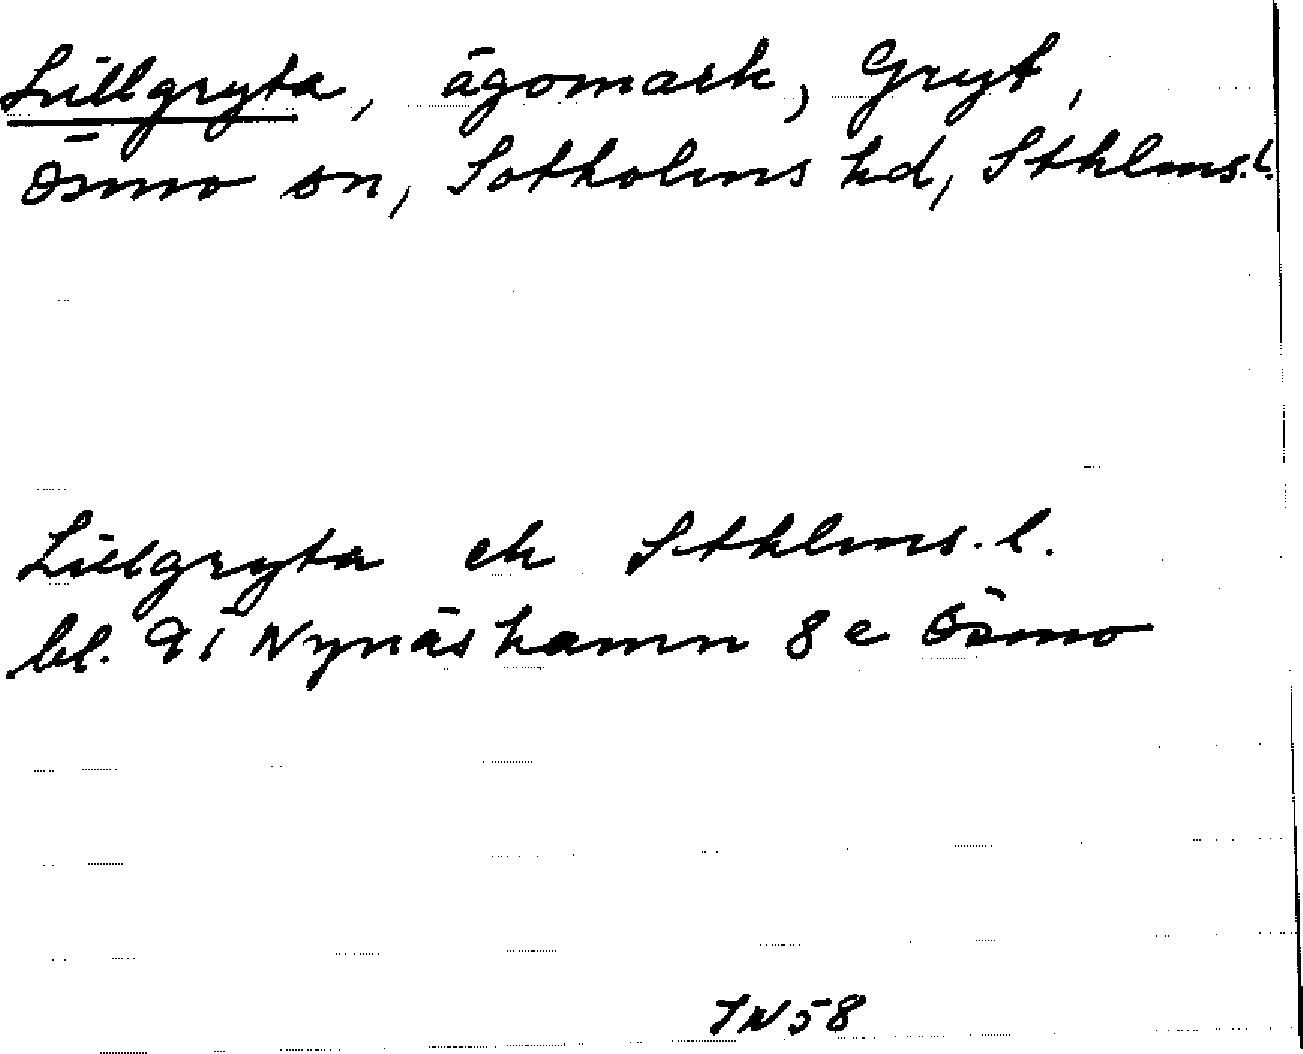 Lillgryta, ägomark, Gryt,
Ösmo sn, Sotholms hd, Sthlms.l.
Lillgryta ek Sthlms.l.
bl. 9i Nynäshamn 8e Ösmo
IN 58